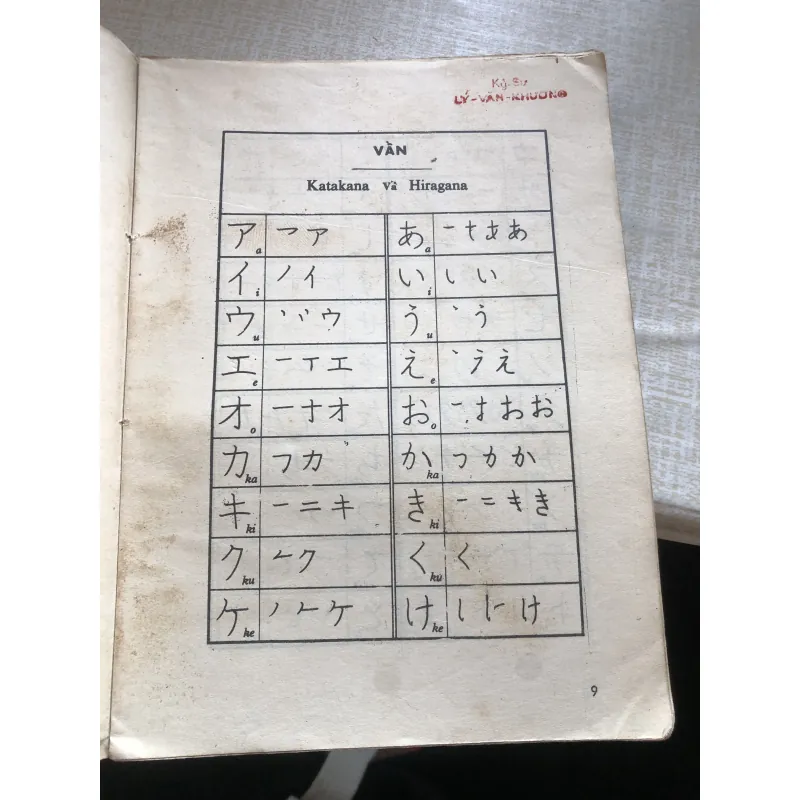 Kỹ-Sư
LÝ-VĂN-KHƯƠNG
VẦN
Katakana và Hiragana
ア a ー ア あ a 一 t あ あ
イ i ノ イ い i し い
ウ u 丶 丷 ウ う u 丶 う
エ e 一 丅 エ え e 丶 ラ え
オ o 一 十 オ お o 一 す お お
カ ka フ カ か ka つ カ か
キ ki 一 二 キ き ki 一 二 キ き
ク ku 𠂉 ク く ku く
ケ ke ノ 𠂉 ケ け ke l に け
9